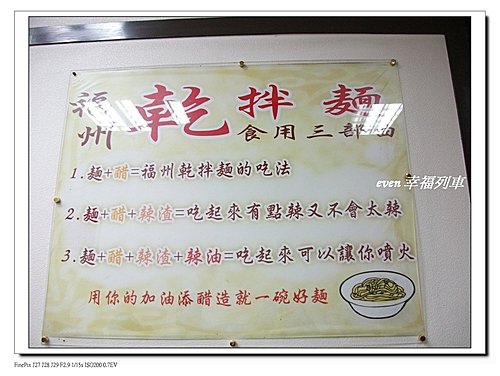 福州 乾拌麵
食用三部曲
1.麵+醋=福州乾拌麵的吃法
2.麵+醋+辣渣=吃起來有點辣又不會太辣
3.麵+醋+辣渣+辣油=吃起來可以讓你噴火
用你的加油添醋造就一碗好麵
even 幸福列車
FinePix J27 J28 J29 F2.9 1/15s ISO200 0.7EV